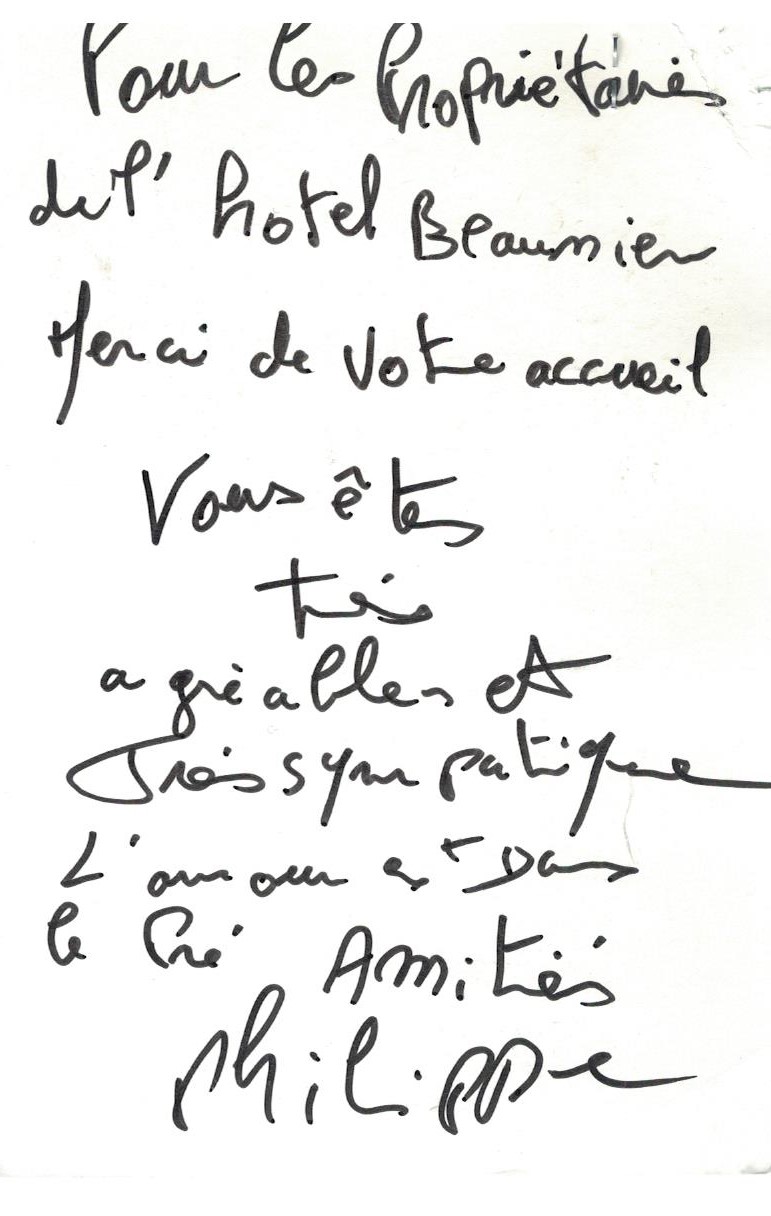 Pour les Propriétaires
de l' hotel Beaumier
Merci de votre accueil
Vous êtes
très
agréables et
Très sympatique
L'amour est Dans
le Pré Amitiés
Philippe